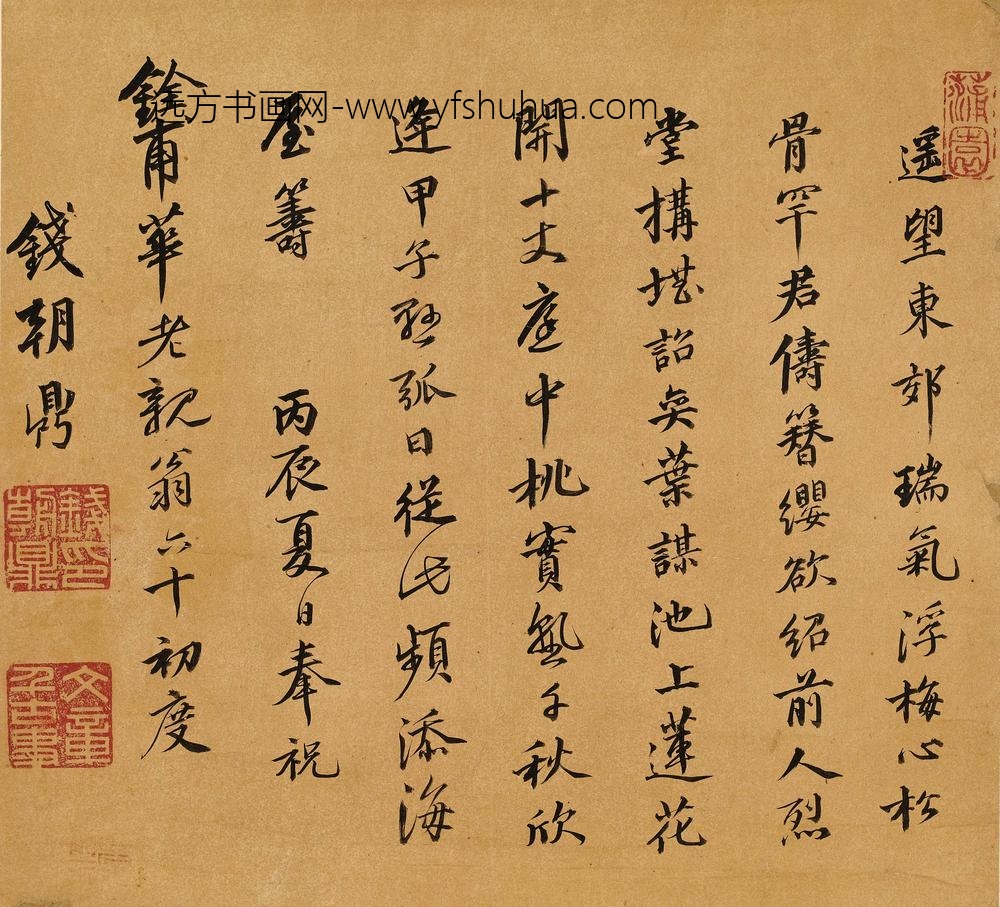 遥望東郊瑞氣浮梅心松
骨罕君儔簪纓欲紹前人烈
堂構堪詒奕葉謀池上蓮花
開十丈庭中桃實熟千秋欣
逢甲子懸弧日從此頻添海
屋籌 丙辰夏日奉祝
甫華老親翁六十初度
錢朝鼎
錢朝鼎印
远方书画网-www.yfshuhua.com